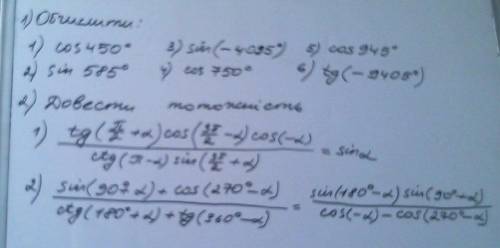 1) Обчислити:
1) cos 450° 3) sin(-4095°) 5) cos 945°
2) sin 585° 4) cos 750° 6) tg(-9405°)
2) Довести тотожність
1) tg(π/2 + α) cos(3π/2 - α) cos(-α) / ctg(π - α) sin(3π/2 + α) = sin α
2) sin(90°+ α) + cos(270° - α) / ctg(180° + α) + tg(360° - α) = sin(180° - α) sin(90° + α) / cos(-α) - cos(270° - α)